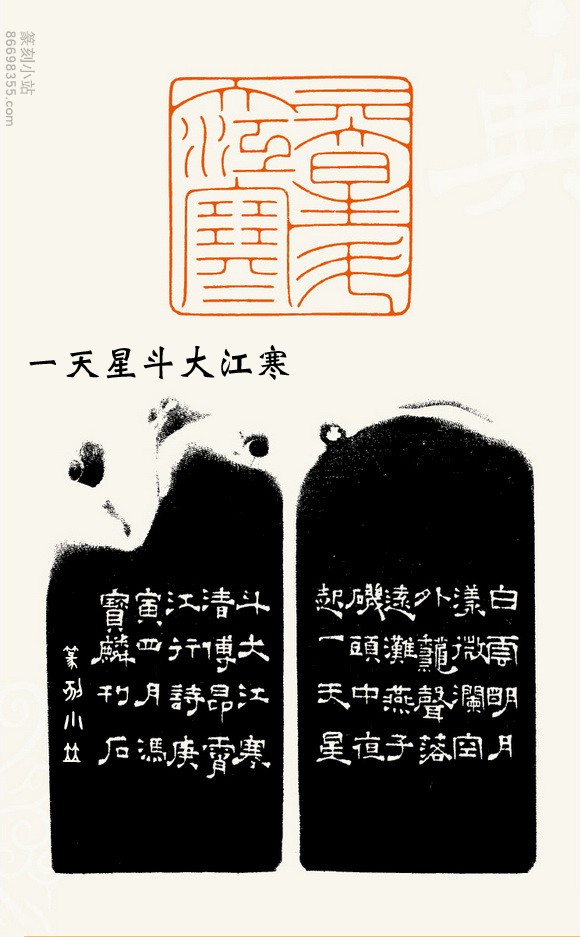 篆刻小站
86698355.com
典
一天星斗
大江寒
一天星斗大江寒
白雲明月
漾微瀾空
外聲落
遠灘燕子
磯頭中夜
起一天星
斗大江寒
清傅昂霄
江行詩庚
寅四月馮
寶麟刊石
篆刻小站